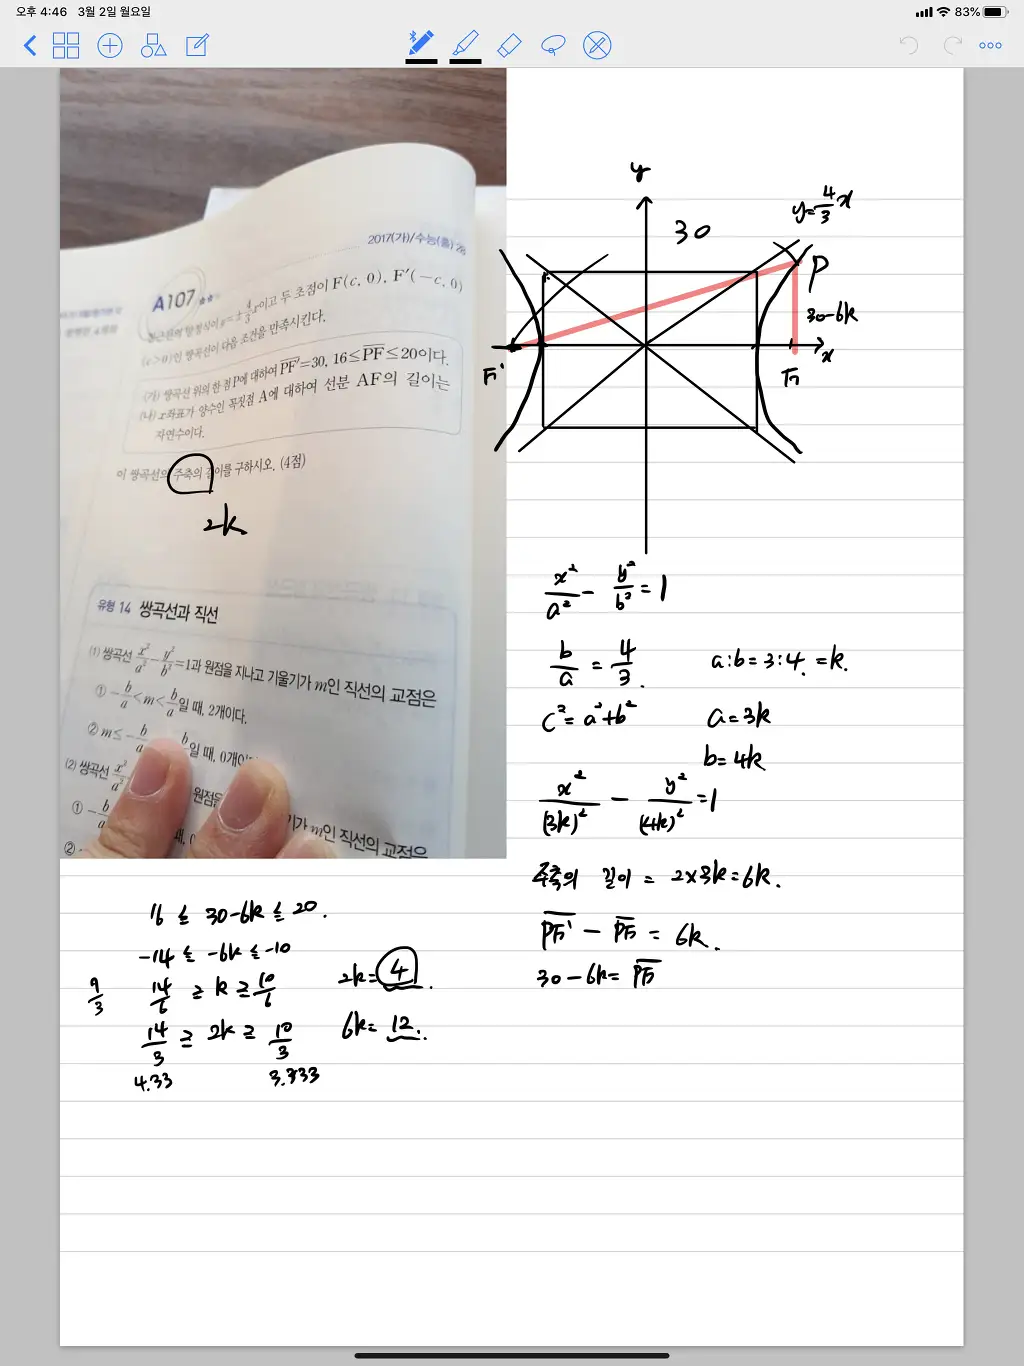 오후 4:46 3월 2일 월요일
83%
2017(가)/수능(홀) 28
A107
점근선의 방정식이 y=±4/3x이고 두 초점이 F(c, 0), F′(−c, 0)
(c>0)인 쌍곡선이 다음 조건을 만족시킨다.
(가) 쌍곡선 위의 한 점 P에 대하여 PF′=30, 16≤PF≤20이다.
(나) x좌표가 양수인 꼭짓점 A에 대하여 선분 AF의 길이는
자연수이다.
이 쌍곡선의 주축의 길이를 구하시오. (4점)
2k
유형 14 쌍곡선과 직선
(1) 쌍곡선 x²/a² − y²/b² =1과 원점을 지나고 기울기가 m인 직선의 교점은
① −b/a<m<b/a일 때, 2개이다.
② m≤−b/a b/a일 때, 0개이
(2) 쌍곡선 x²
원점을 기가 m인 직선의 교점은
① −b/a
②
y
30
y=4/3x
P
30-6k
F'
F
x
x²/a² - y²/b² = 1
b/a = 4/3.
a:b=3:4. =k.
c²=a²+b²
a=3k
b=4k
x²/(3k)² - y²/(4k)² =1
주축의 길이 = 2×3k=6k.
PF' - PF = 6k.
30-6k= PF
16 ≤ 30-6k ≤ 20.
-14 ≤ -6k ≤ -10
9/3
14/6 ≥ k ≥ 10/6
2k=4.
14/3 ≥ 2k ≥ 10/3
6k= 12.
4.33
3.333